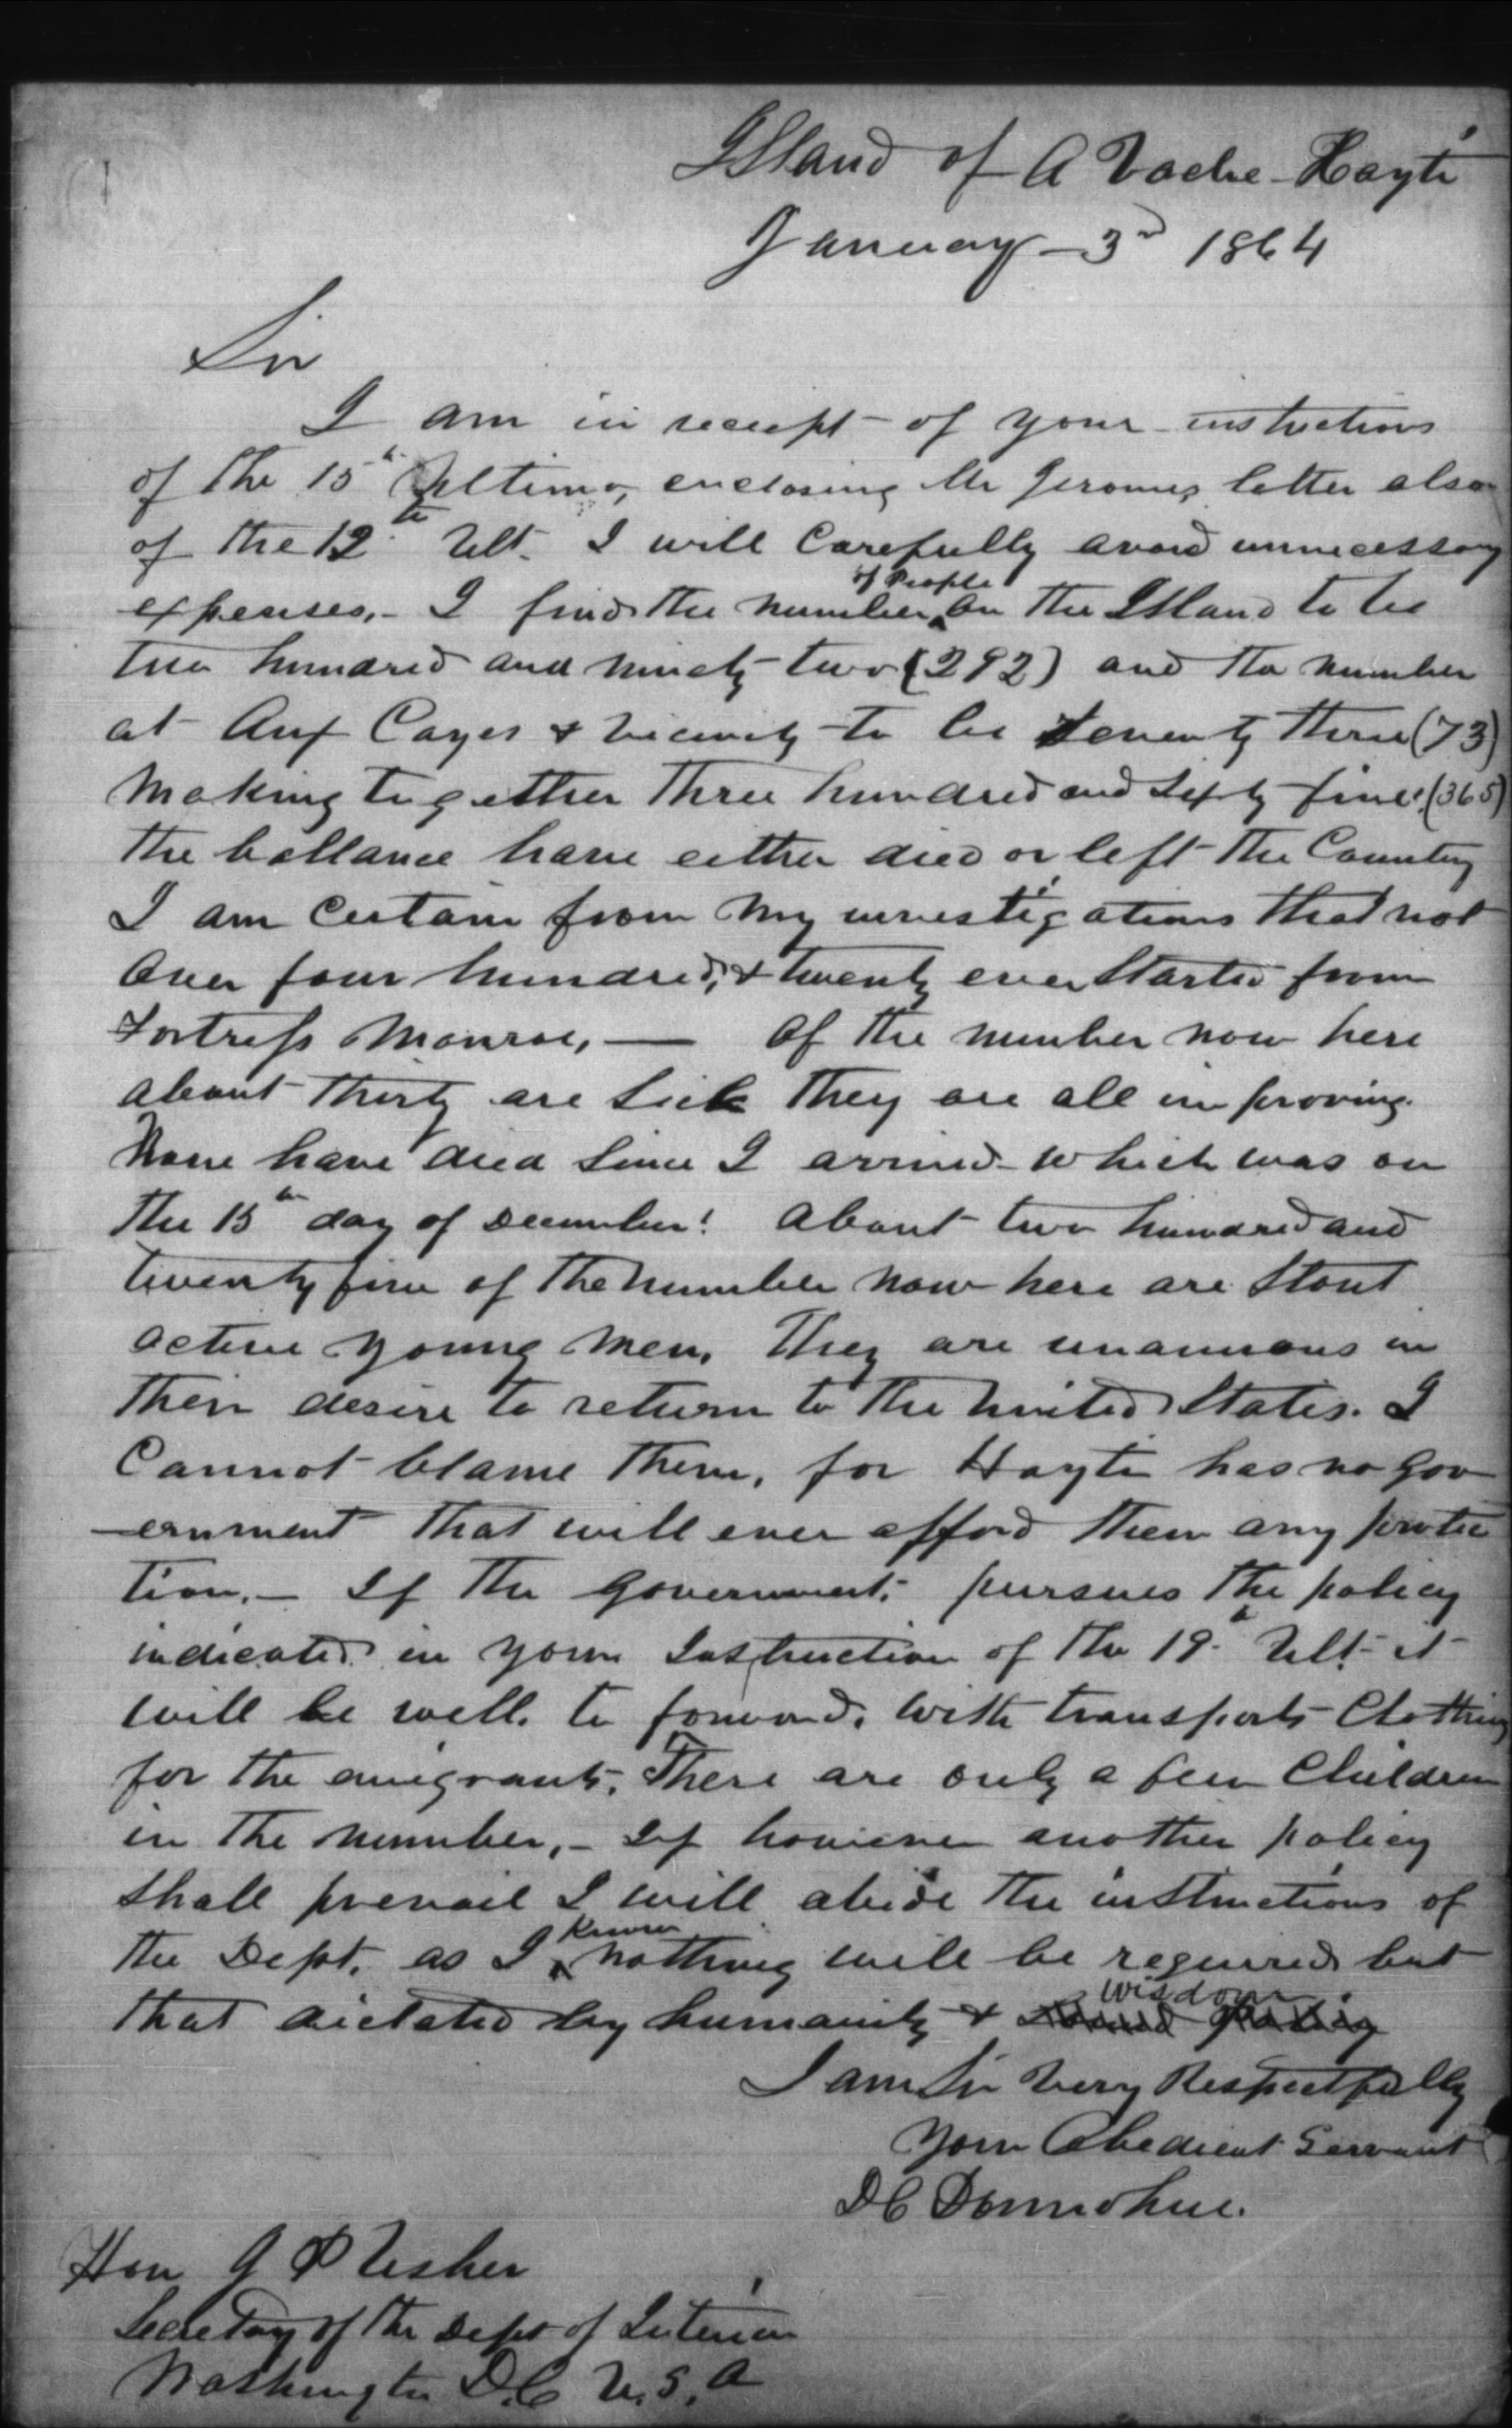 Island of A Vache - Hayti
January - 3d 1864
Sir
I am in receipt of your instuctions
of the 15th Ultimo, enclosing Mr Jeromes letter also
of the 12th Ult. I will Carefully avoid unnecessary
expenses, - I find the number of People on the Island to be
two hundred and ninety two (292) and the number
at Aux Cayes & vicinity to be Seventy three (73)
Making together three hundred and Sixty five (365)
the ballance have either died or left the Country
I am Certain from my investigations that not
Over four hundred, & twenty ever Started from
Fortress Monroe, — Of the number now here
about thirty are Sick they are all improving.
None have died Since I arrived which was on
the 15th day of December. About two hundred and
twenty five of the number now here are Stout
active young men. They are unanimous in
their desire to return to the United States. I
Cannot blame them, for Hayti has no Gov
-ernment that will ever afford them any protec
tion. - If the Government pursues the policy
indicated in your Instruction of the 19th Ult. it
will be well to forward, with transports Clothing
for the emigrants. There are only a few Children
in the number, - If however another policy
Shall prevail I will abide the instructions of
the Dept. as I Know nothing will be required but
that dictated by humanity & wisdom
I am Sir Very Respectfully
Your Obedient Servant
D C Donnohue.
Hon J P Usher
Secretary of the Dept of Interior
Washington D.C U.S.A